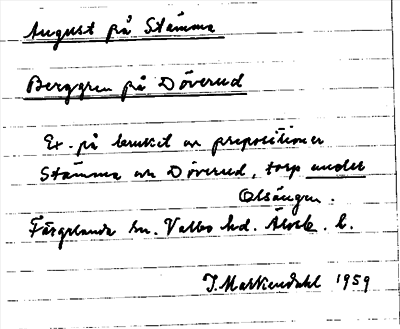 August på Stämma
Berggren på Döverud
Ex. på bruket av prepositioner
Stämma och Döverud, torp under
Olsängen.
Färgelanda sn. Valbo hd. Älvsb. l.
J. Markendahl 1959